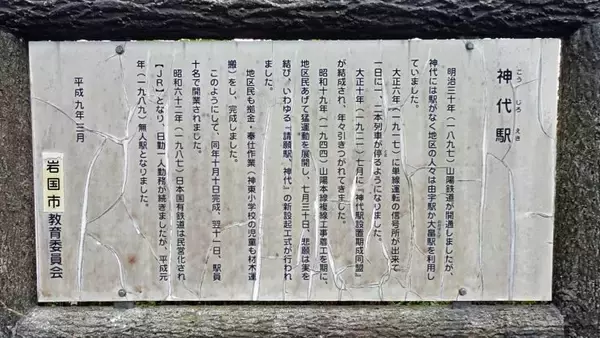 神代駅
こうじろえき
明治三十年(一八九七)山陽鉄道が開通しましたが、
神代には駅がなく地区の人々は由宇駅か大畠駅を利用し
ていました。
大正六年(一九一七)に単線運転の信号所が出来て
一日に一、二本列車が停るようになりました。
大正十年(一九二一)七月に『神代駅設置期成同盟』
が結成され、年々引きつがれてきました。
昭和十九年(一九四四)山陽本線複線工事着工を期に、
地区民あげて猛運動を展開し、七月三十日、悲願は実を
結び、いわゆる「請願駅、神代」の新設起工式が行われ
ました。
地区民も拠金・奉仕作業(神東小学校の児童も材木運
搬)をし、完成しました。
このようにして、同年十月十日完成、翌十一日、駅員
十名で開業されました。
昭和六十二年(一九八七)日本国有鉄道は民営化され
【JR】となり、日勤一人勤務が続きましたが、平成元
年(一九八九)無人駅となりました。
平成九年三月
岩国市教育委員会